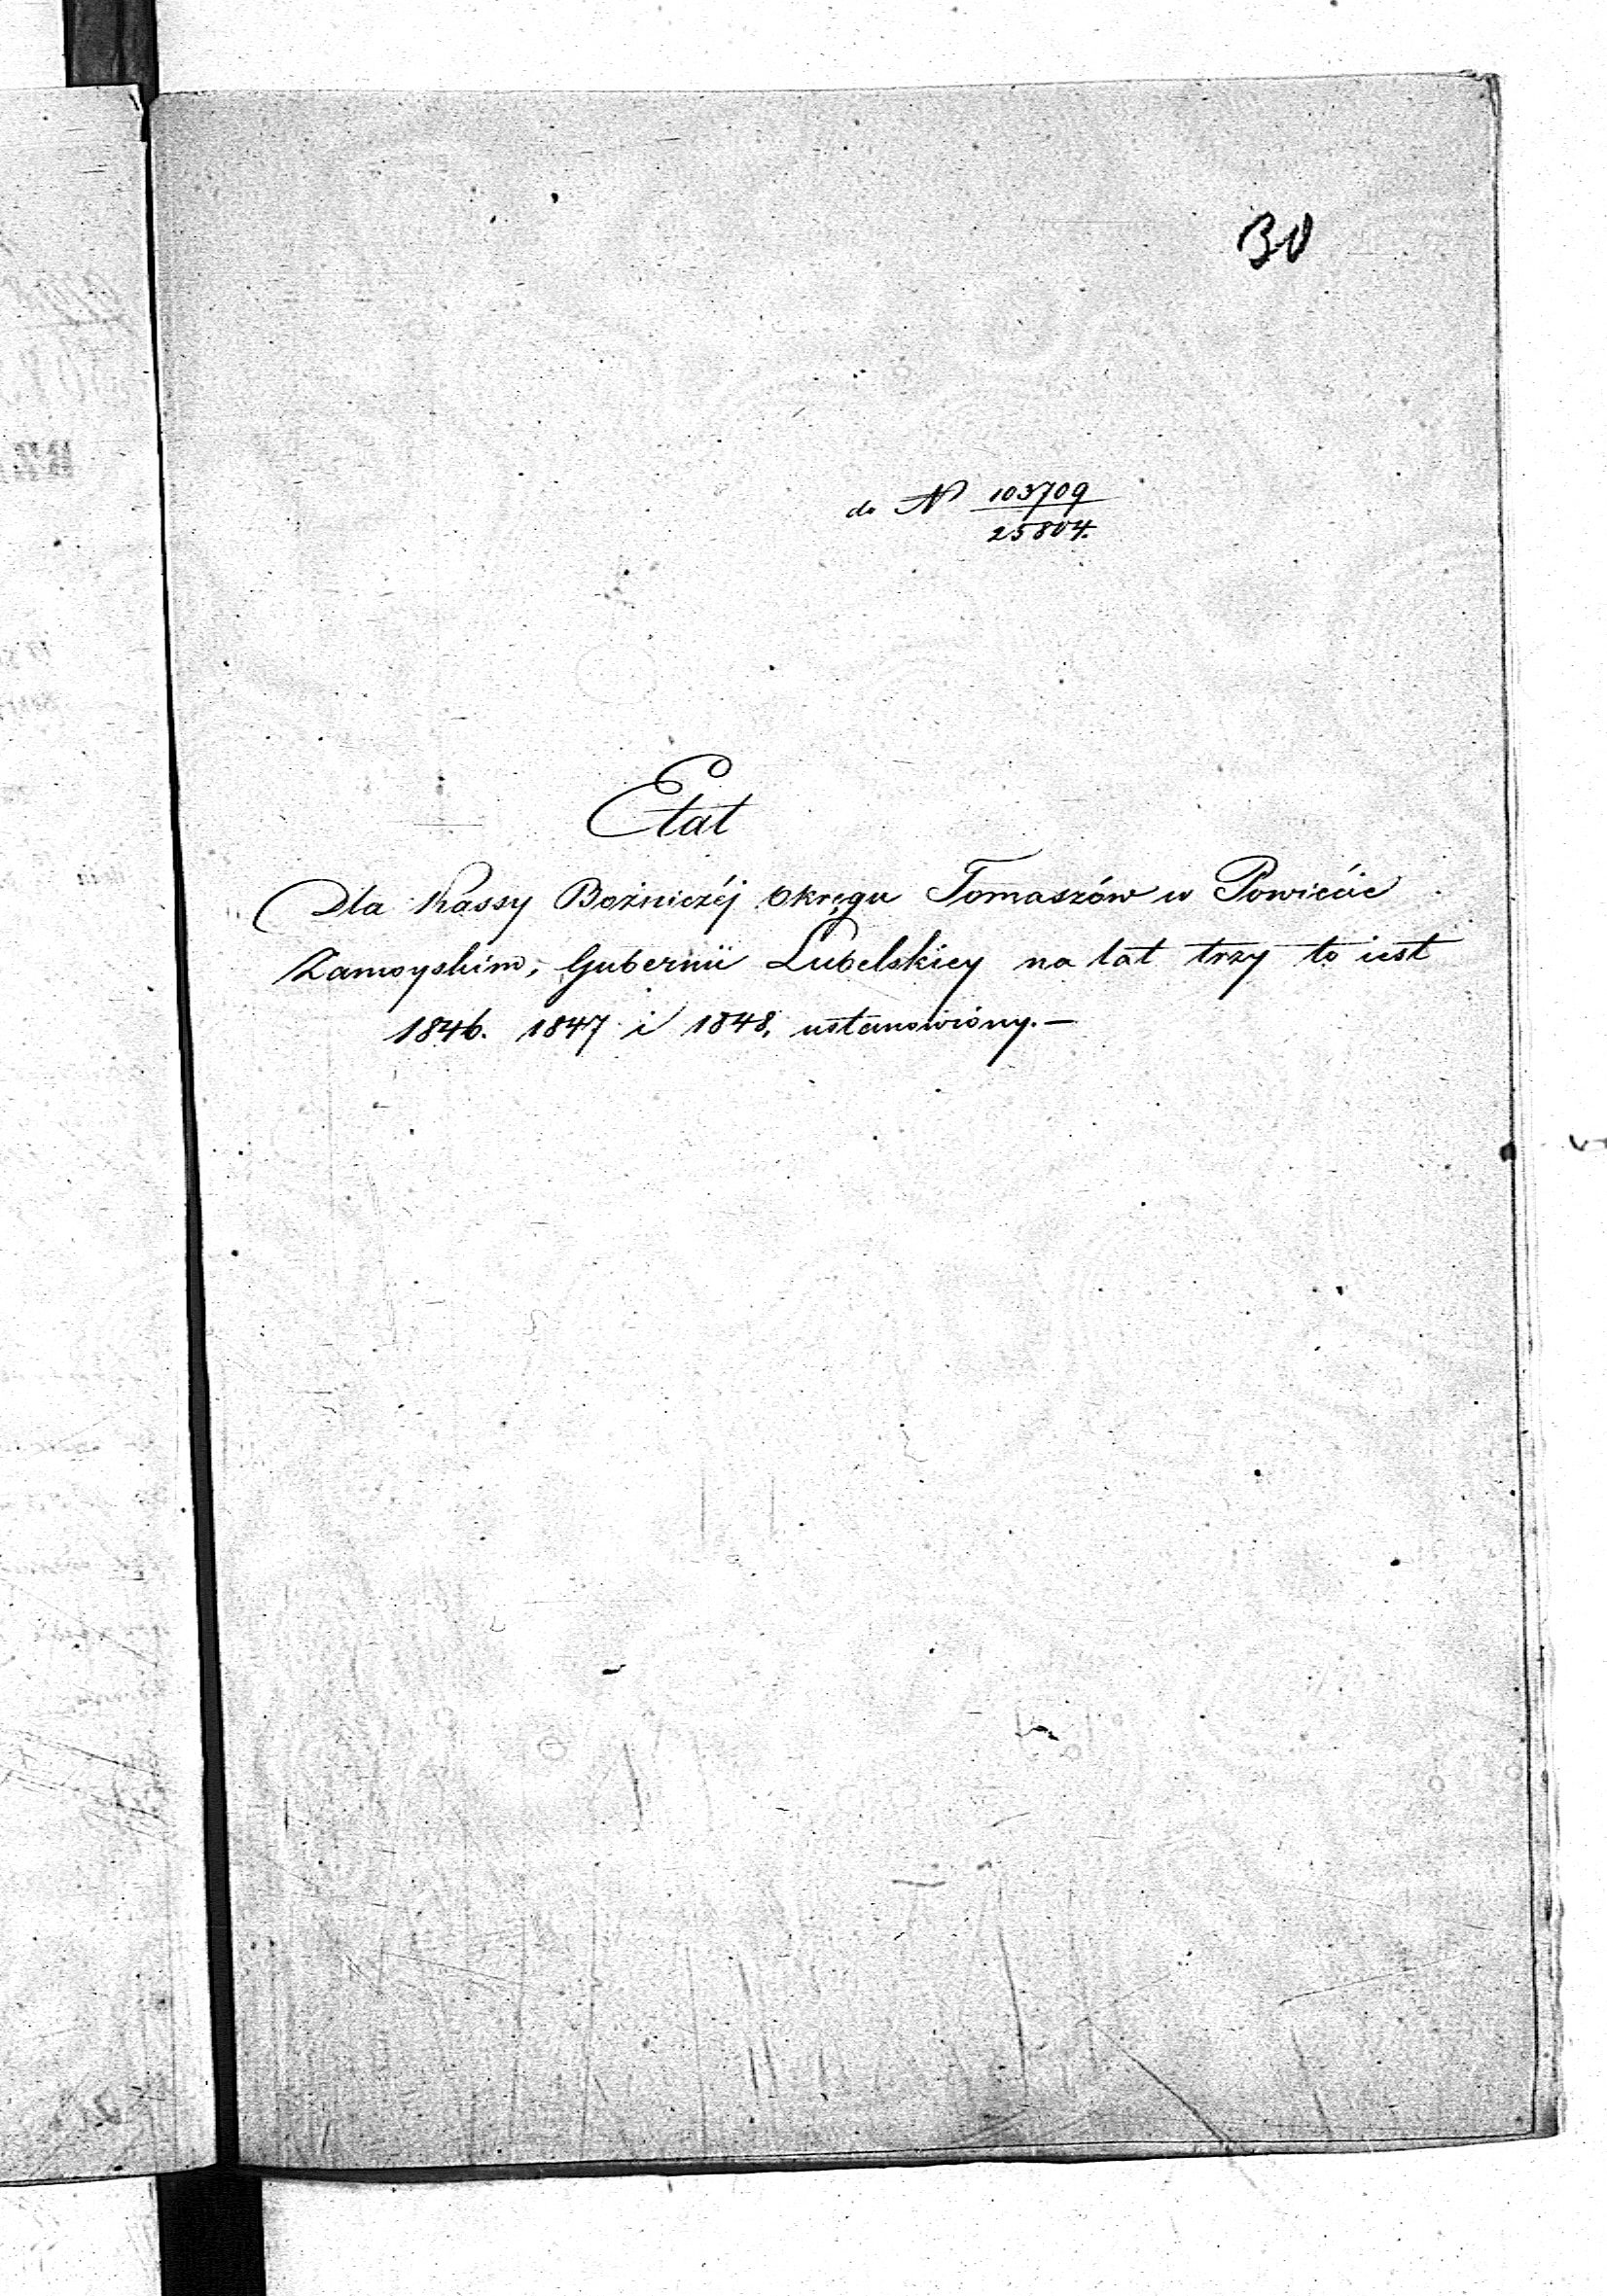 30
do N 103709
25804.
Etat
Dla Kassy Bożniczéj Okręgu Tomaszów w Powiećie
Zamoyskim, Gubernii Lubelskiey na lat trzy to iest
1846. 1847 i 1848, ustanowióny.—